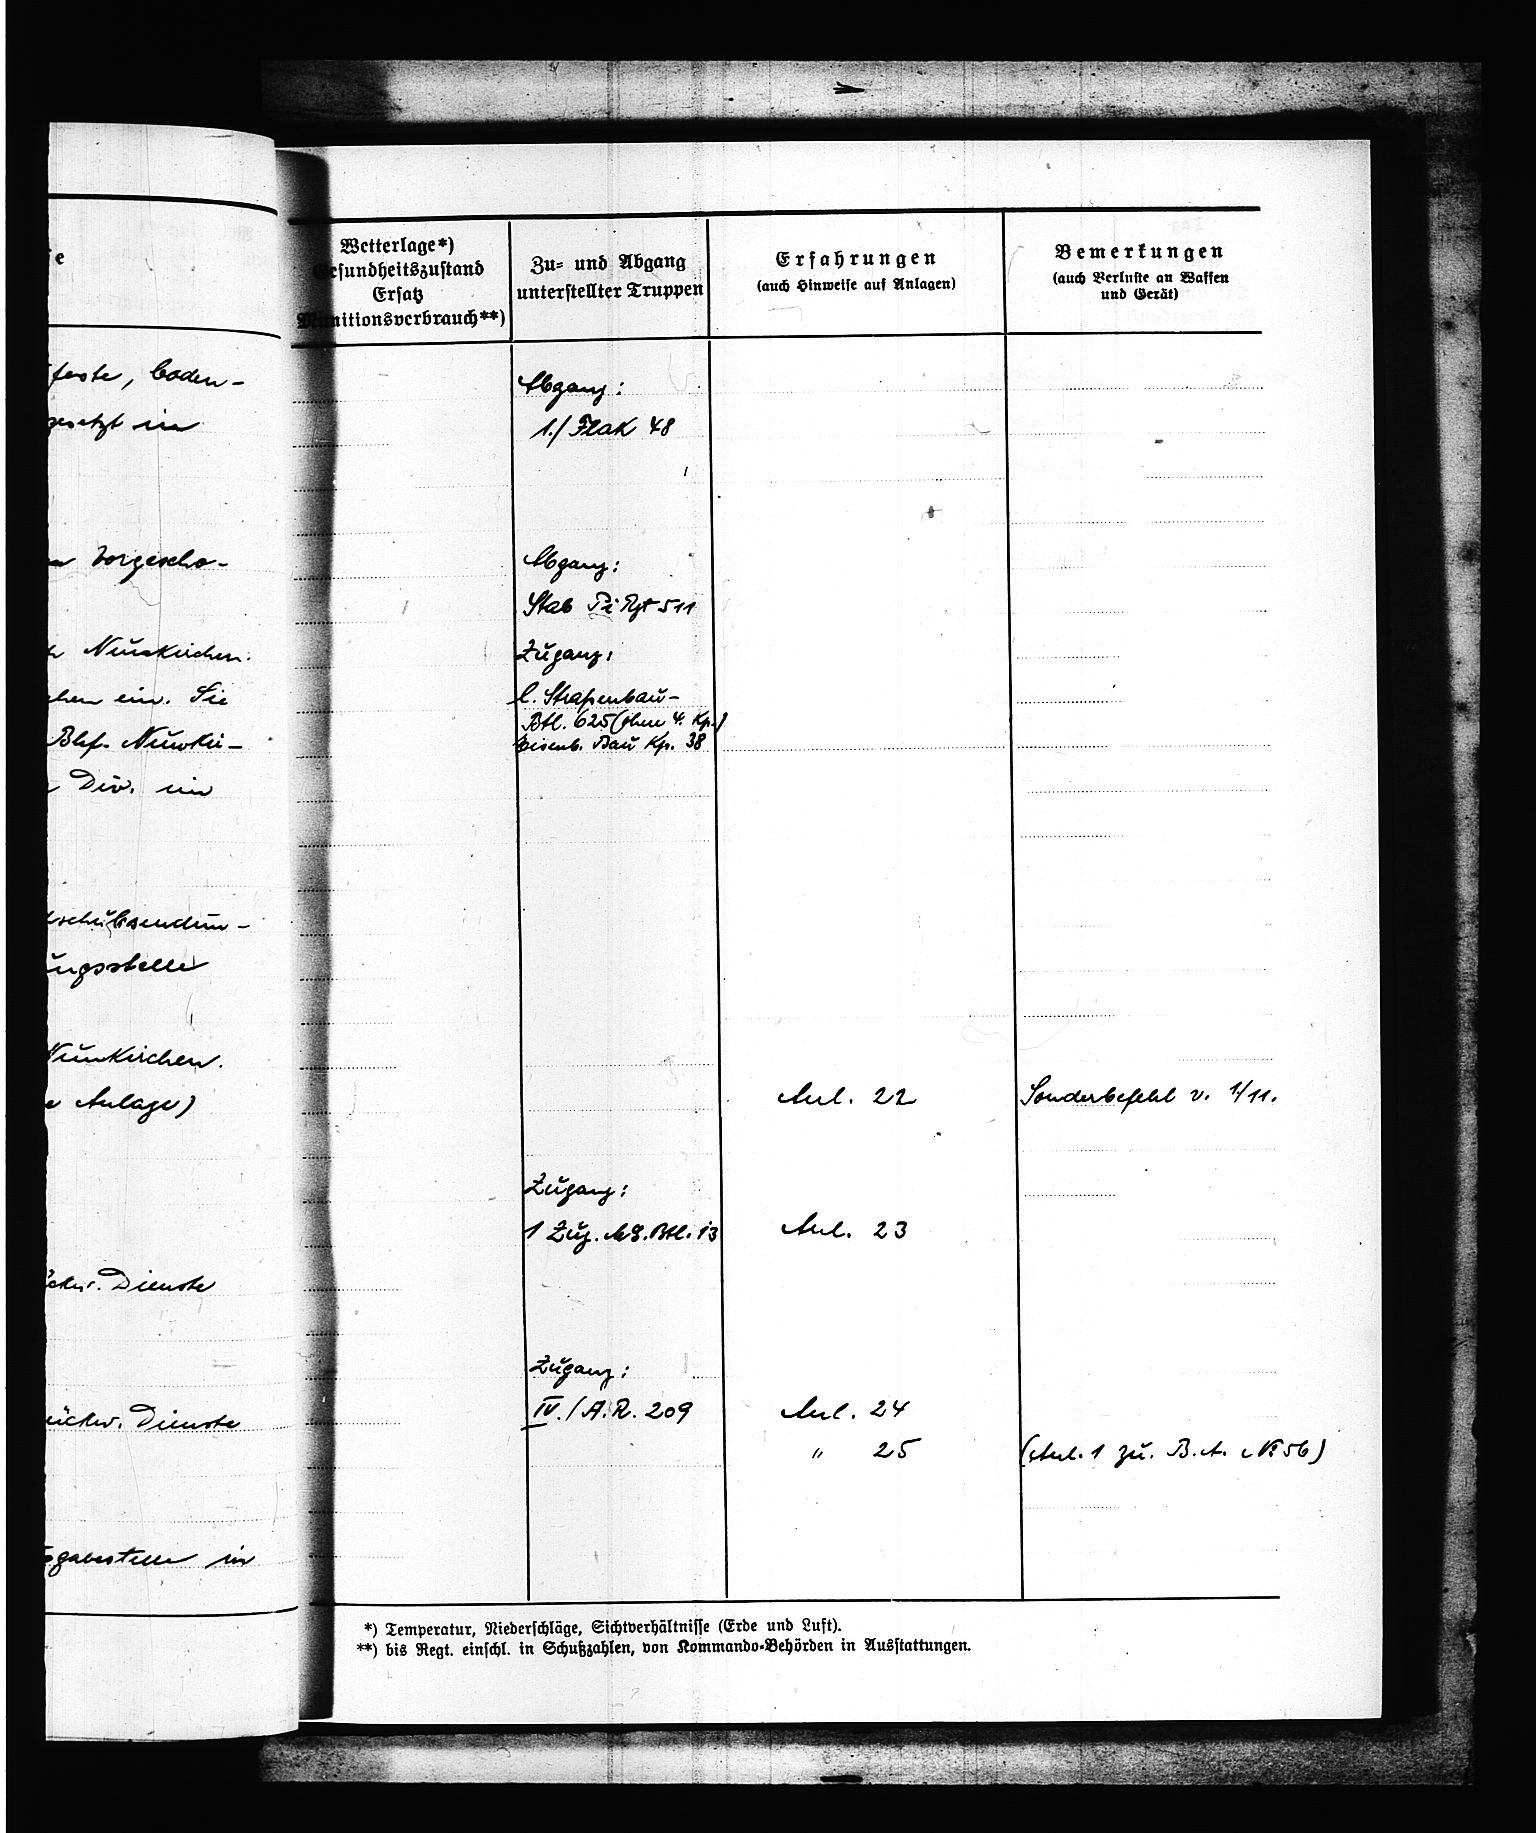 e
feste, boden-
gesetzt in
vorgescho-
Neunkirchen.
chen ein. Sie
Bhf. Neunki-
Div. im
schubsendun-
ungsstelle
Neunkirchen.
e Anlage)
ückw. Dienste
rückw. Dienste
sgabestelle in
Wetterlage*)
Gesundheitszustand
Ersatz
Munitionsverbrauch**)
Zu- und Abgang
unterstellter Truppen
Erfahrungen
(auch Hinweise auf Anlagen)
Bemerkungen
(auch Verluste an Waffen
und Gerät)
Abgang:
1./ Flak 48
Abgang:
Stab Pi Rgt 511
Zugang:
l. Straßenbau-
Btl. 625 (ohne 4. Kp.)
Eisenb. Bau Kp. 38
Anl. 22 Sonderbefehl v. 1/11.
Zugang:
1 Zug. M.G. Btl. 13 Anl. 23
Zugang:
IV./A.R. 209 Anl. 24
" 25 (Anl. 1 zu. B.A. № 56)
*) Temperatur, Niederschläge, Sichtverhältnisse (Erde und Luft).
**) bis Regt. einschl. in Schußzahlen, von Kommando-Behörden in Ausstattungen.